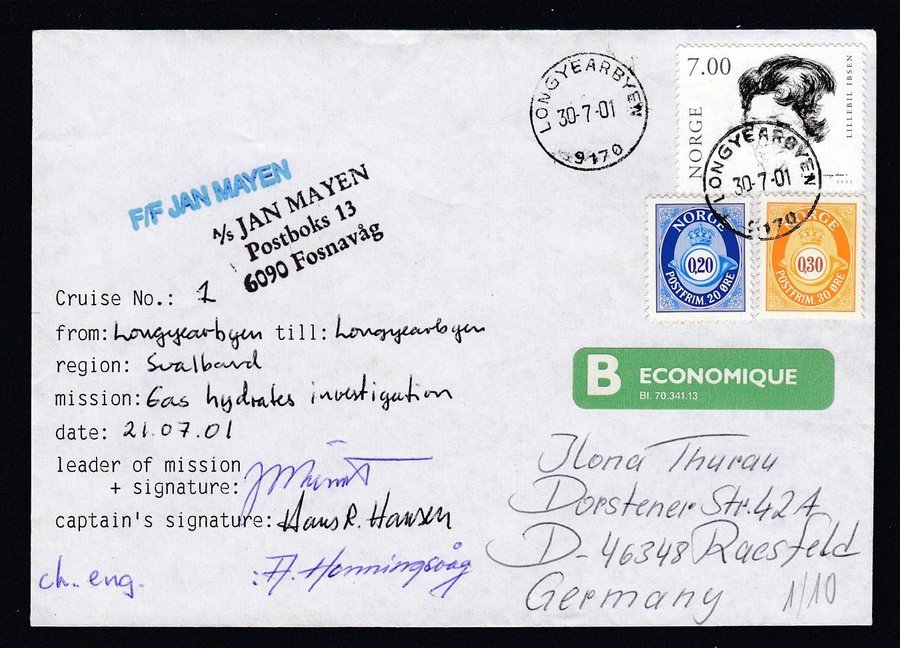 LONGYEARBYEN
30-7-01
9170
7.00
NORGE
LILLEBIL IBSEN
LONGYEARBYEN
30-7-01
9170
F/F JAN MAYEN
A/s JAN MAYEN
Postboks 13
6090 Fosnavåg
NORGE
0,20
POSTFRIM. 20 ØRE
NORGE
0,30
POSTFRIM. 30 ØRE
Cruise No.: 1
from: Longyearbyen till: Longyearbyen
region: Svalbard
mission: Gas hydrates investigation
date: 21.07.01
leader of mission
+ signature:
captain's signature: Hans R. Hansen
ch. eng. : A. Honningsvåg
B ECONOMIQUE
Bl. 70.341.13
Ilona Thurau
Dorstener Str. 42A
D-46348 Raesfeld
Germany
1/10